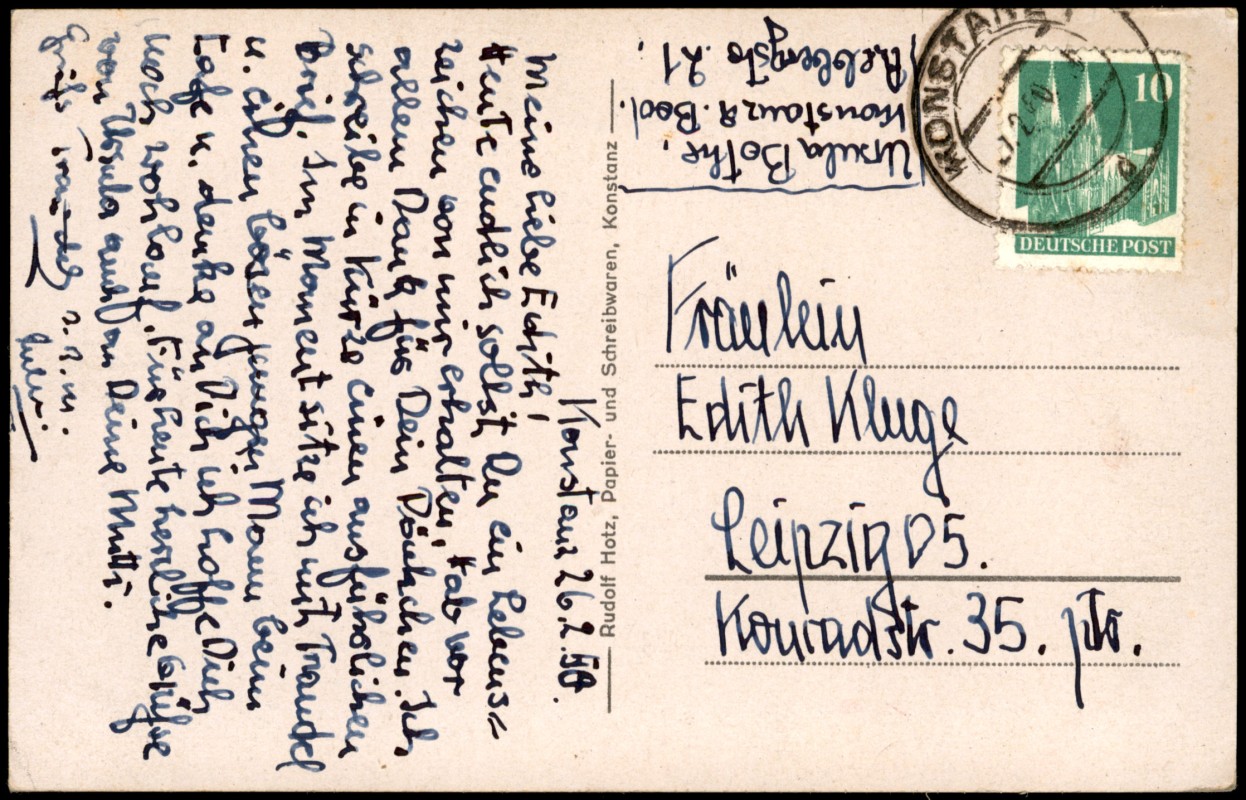 Konstanz 26.2.50.
Meine liebe Edith!
Heute endlich sollst Du ein Lebens=
zeichen von mir erhalten. Hab vor
allem Dank für Dein Päckchen. Ich
schreibe in Kürze einen ausführlichen
Brief. Im Moment sitze ich mit Traudel
u. einen bösen jungen Mann beim
u. denke an Dich ich hoffe Dich
noch wohlauf. Für heute herzliche Grüße
von Ursula auch an Deine Mutti.
Grüße Traudel
Rudolf Hotz, Papier- und Schreibwaren, Konstanz
Ursula Bothe.
Konstanz a. Bod.
21
KONSTANZ
10
DEUTSCHE POST
Fräulein
Edith Kluge
Leipzig O5.
Konradstr. 35. ptr.